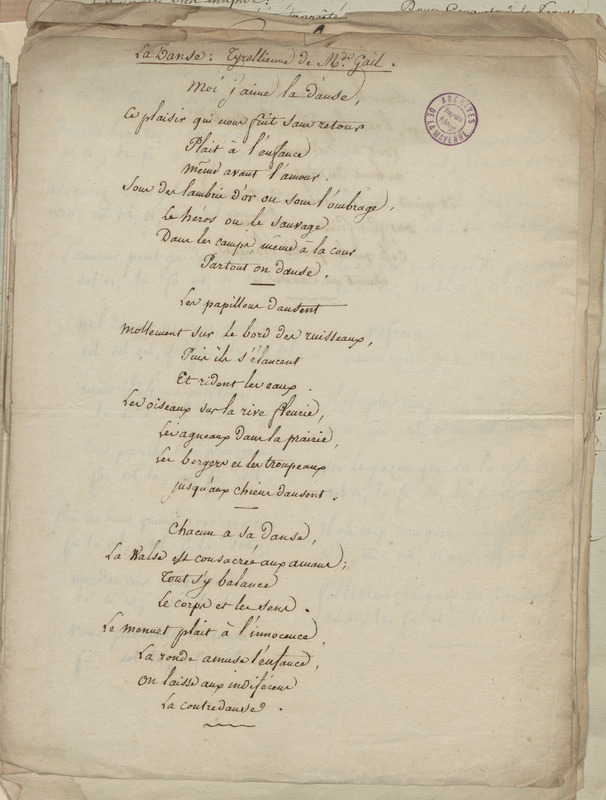 La Danse: Tyrollienne de Mde. Gail.
Moi j'aime la danse,
Ce plaisir qui nous fuit sans retour
Plait à l'enfance
même avant l'amour.
Sous des lambris d'or ou sous l'ombrage,
Le héros ou le sauvage
Dans les camps, même à la cour
Partout on danse.
Les papillons dansent
mollement sur le bord des ruisseaux,
Puis ils s'élancent
Et rident les eaux.
Les oiseaux sur la rive fleurie,
Les agneaux dans la prairie,
Les bergers et les troupeaux
jusqu'aux chiens dansent.
Chacun a sa danse,
La Walse est consacrée aux amans;
Tout s'y balance
Le corps et les sens.
Le menuet plait à l'innocence,
La ronde amuse l'enfance,
On laisse aux indiférens
La contredanse.
ARCHIVES
DE LA MAYENNE